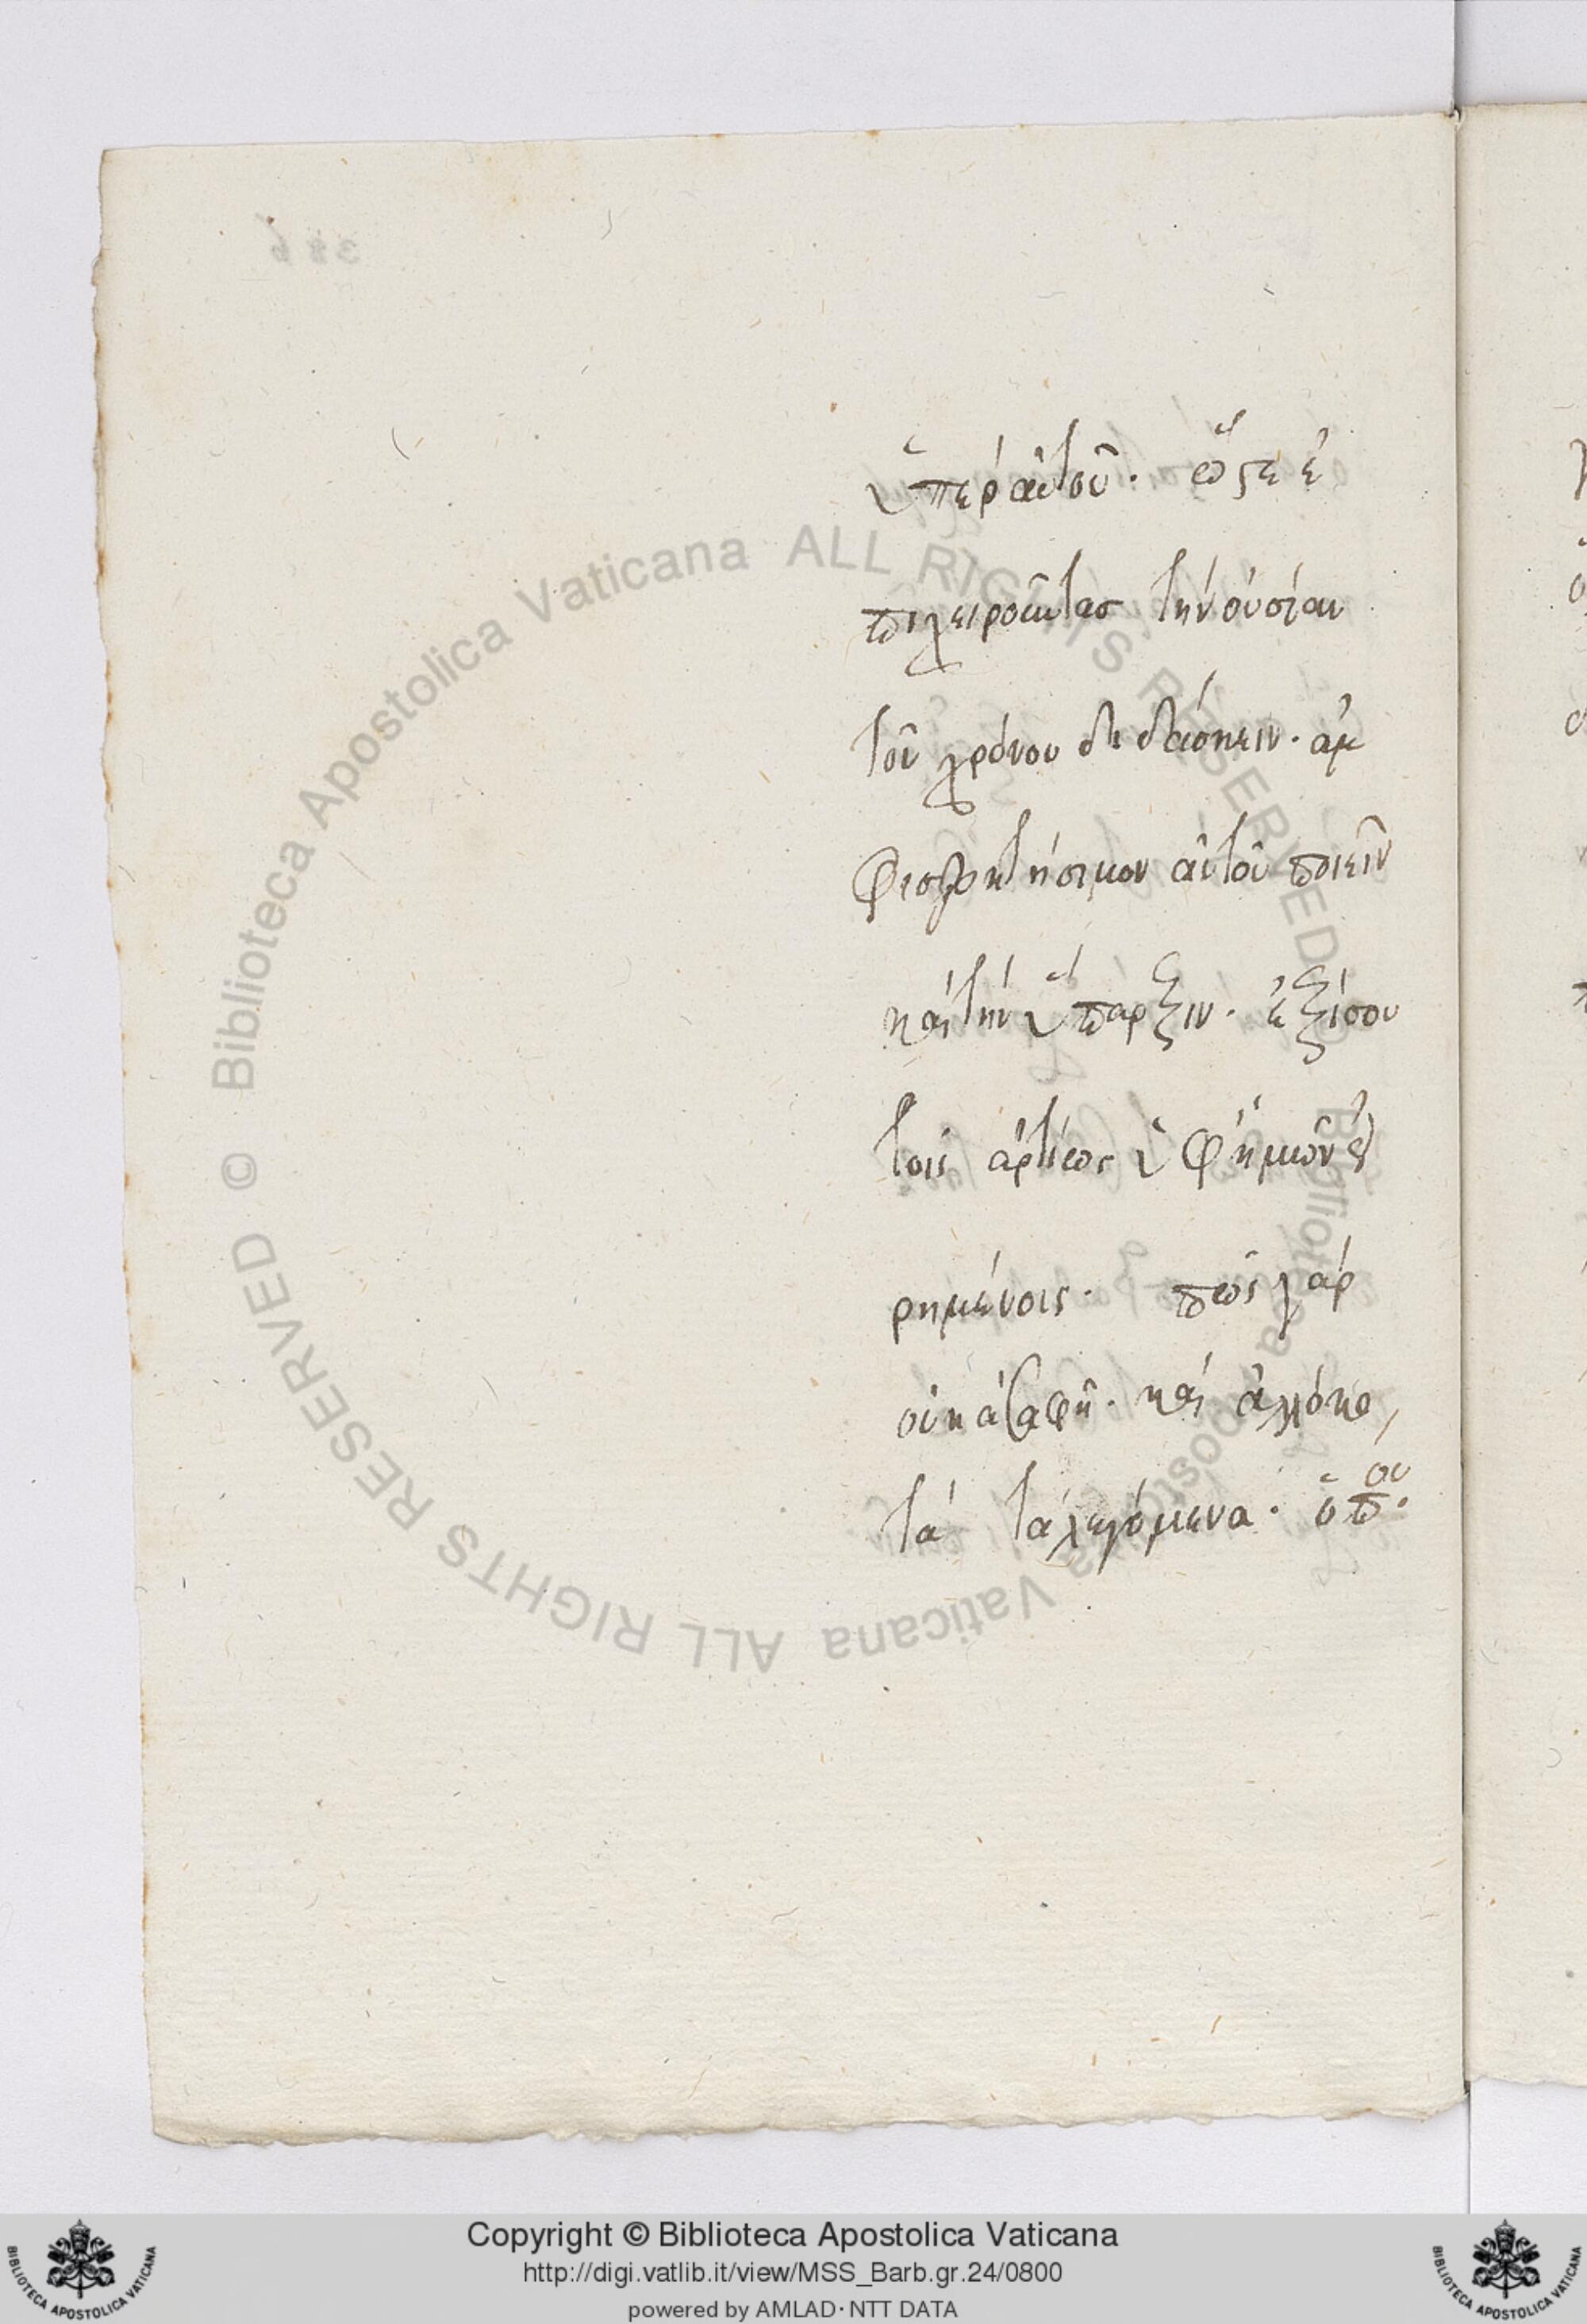 ὑπὲρ αὐτοῦ· ὥστε ἐ
πιχειροῦντας τὴν οὐσίαν
τοῦ χρόνου διδάσκειν· ἀμ
φισβητήσιμον αὐτοῦ ποιεῖν
καὶ τὴν ὕπαρξιν· ἐξίσου
τοῖς ἀρτίως ὑφ' ἡμῶν εἰ
ρημένοις· πῶς γὰρ
οὐκ ἀσαφῆ· καὶ ἀλλόκο
τα τὰ λεγόμενα· ὅπου·
Biblioteca Apostolica Vaticana ALL RIGHTS RESERVED ©
Biblioteca Apostolica Vaticana ALL RIGHTS RESERVED ©
Copyright © Biblioteca Apostolica Vaticana
http://digi.vatlib.it/view/MSS_Barb.gr.24/0800
powered by AMLAD·NTT DATA
BIBLIOTECA APOSTOLICA VATICANA
BIBLIOTECA APOSTOLICA VATICANA